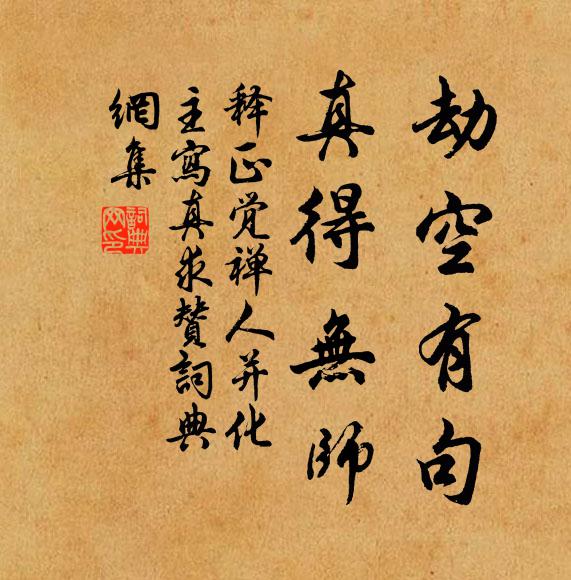 劫空有句
真得無師
释正觉禅人并化
主寫真求賛詞典
網集
詞典
网印